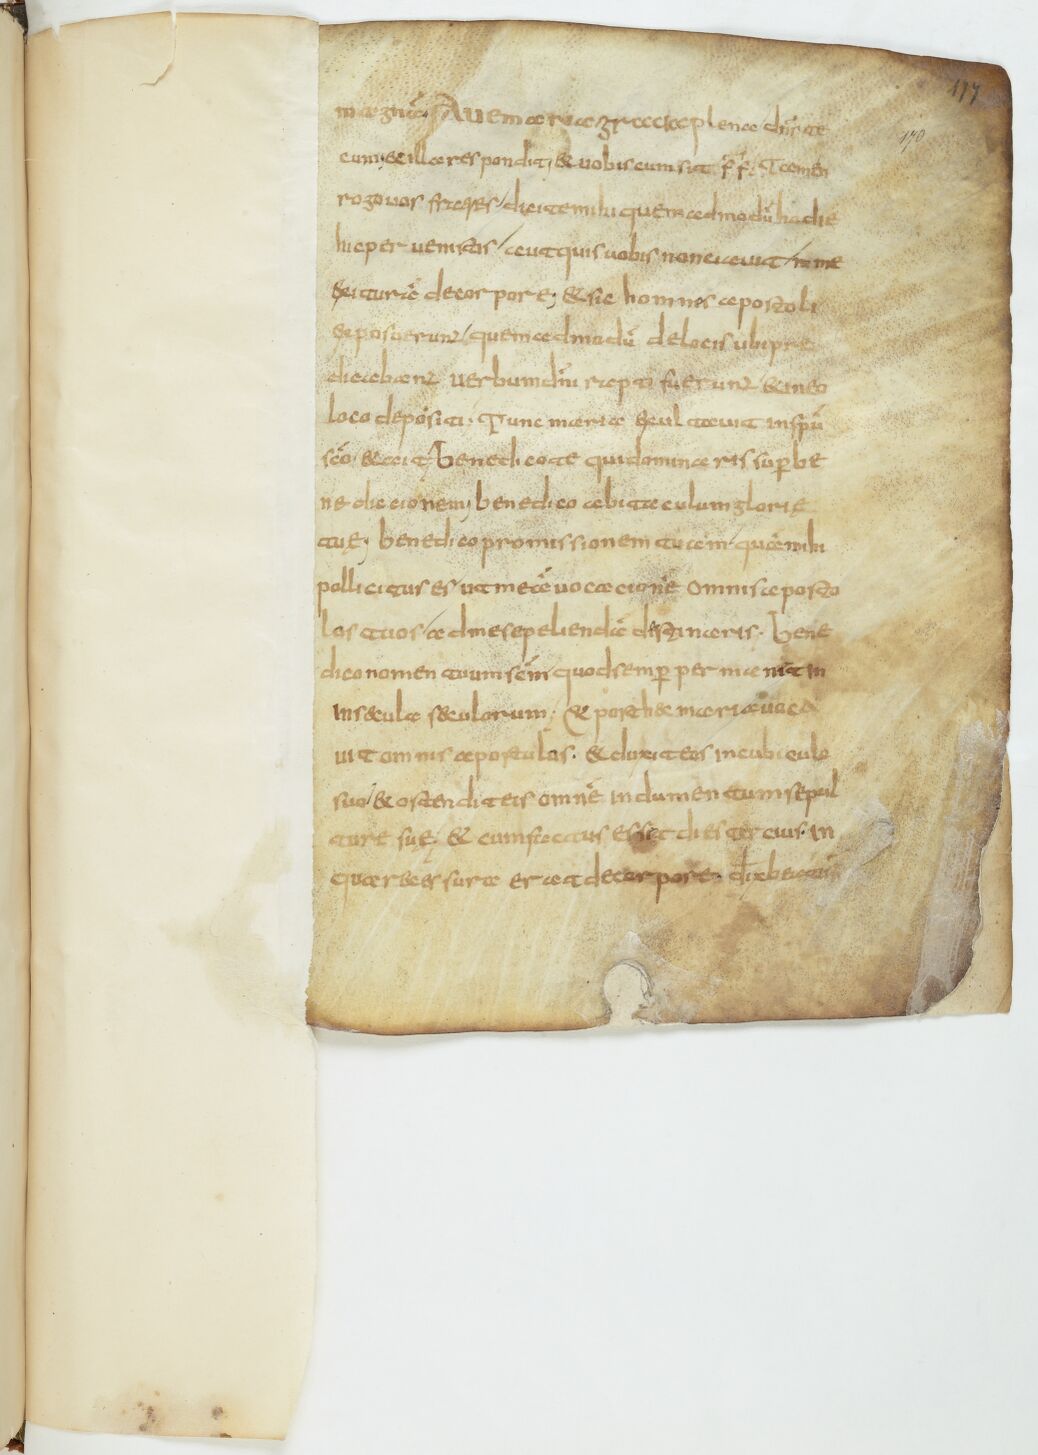 117
170
magnã. Aue maria gracia plena dñs te
cum; & illa respondit; & uobiscum sit f̃f̃; Tamen
rogo uos frãtres / dicite mihi quemadmodũ hodie
huc peruenistis / aut quis uobis nonciauit / me
exiturã de corpore; & sic homnes apostoli
exposuerunt / quemadmodũ de locis ubi pre
dicabant uerbum dñi rapti fuerunt & in eo
loco depositi. Tunc maria exultauit in spũ
scõ. & ait; Benedico te qui dominaris sup̱ be
nedicionem; benedico abitaculum glorię
tuę; benedico promissionem tuam quãmihi
pollicitus es ut meã uocacionẽ omnis aposto
los tuos / ad me sepeliendã destinaris. Bene
dico nomen tuum scm̃ quod semp̱ permanit in
in secula seculorum; & post hec maria uoca
uit omnis apostulos. & duxit eos in cubiculo
suo / & ostendit eis omnẽ indumentum sepul
ture suę; & cum factus esset dies tercius. in
qua recessura erat de corpore;